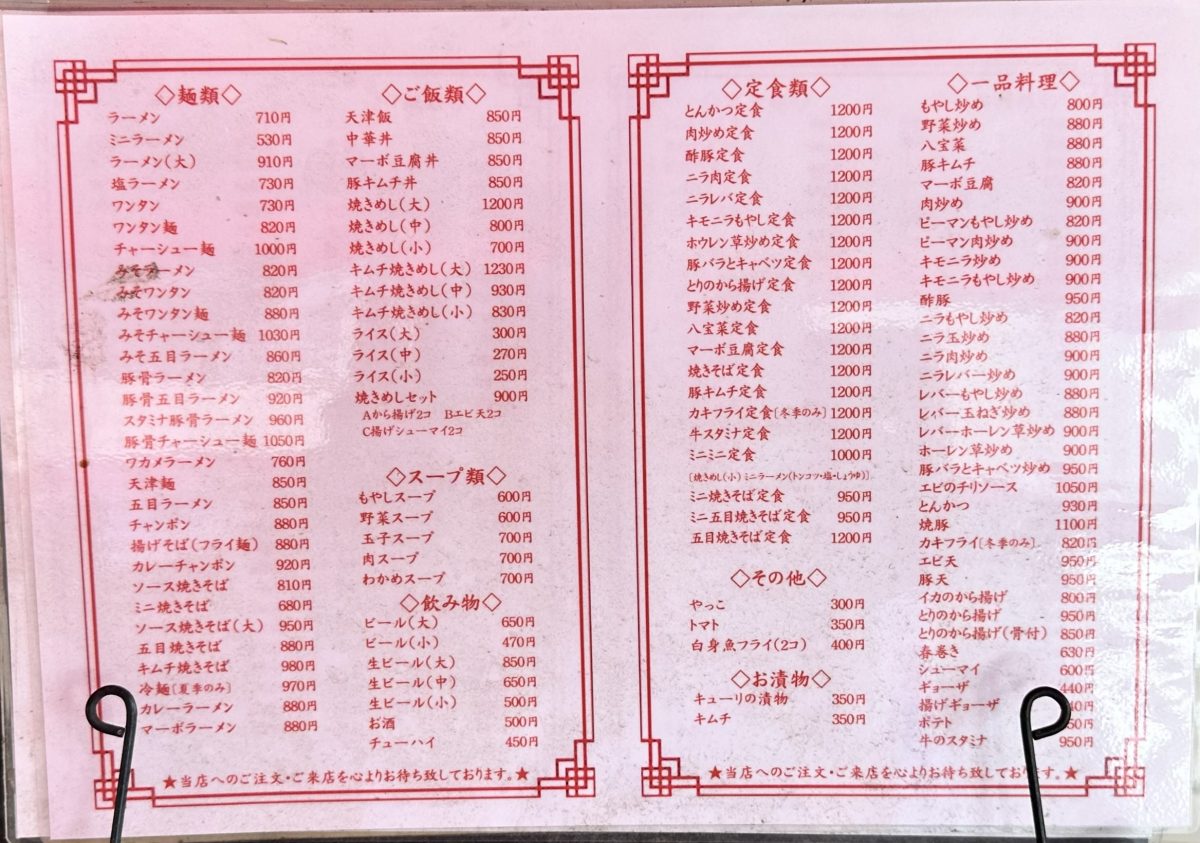 ◇麺類◇
ラーメン 710円
ミニラーメン 530円
ラーメン(大) 910円
塩ラーメン 730円
ワンタン 730円
ワンタン麺 820円
チャーシュー麺 1000円
みそラーメン 820円
みそワンタン 820円
みそワンタン麺 880円
みそチャーシュー麺 1030円
みそ五目ラーメン 860円
豚骨ラーメン 820円
豚骨五目ラーメン 920円
スタミナ豚骨ラーメン 960円
豚骨チャーシュー麺 1050円
ワカメラーメン 760円
天津麺 850円
五目ラーメン 850円
チャンポン 880円
揚げそば(フライ麺) 880円
カレーチャンポン 920円
ソース焼きそば 810円
ミニ焼きそば 680円
ソース焼きそば(大) 950円
五目焼きそば 880円
キムチ焼きそば 980円
冷麺〔夏季のみ〕 970円
カレーラーメン 880円
マーボラーメン 880円
◇ご飯類◇
天津飯 850円
中華丼 850円
マーボ豆腐丼 850円
豚キムチ丼 850円
焼きめし(大) 1200円
焼きめし(中) 800円
焼きめし(小) 700円
キムチ焼きめし(大) 1230円
キムチ焼きめし(中) 930円
キムチ焼きめし(小) 830円
ライス(大) 300円
ライス(中) 270円
ライス(小) 250円
焼きめしセット 900円
Aから揚げ2コ Bエビ天2コ
C揚げシューマイ2コ
◇スープ類◇
もやしスープ 600円
野菜スープ 600円
玉子スープ 700円
肉スープ 700円
わかめスープ 700円
◇飲み物◇
ビール(大) 650円
ビール(小) 470円
生ビール(大) 850円
生ビール(中) 650円
生ビール(小) 500円
お酒 500円
チューハイ 450円
★当店へのご注文・ご来店を心よりお待ち致しております。★
◇定食類◇
とんかつ定食 1200円
肉炒め定食 1200円
酢豚定食 1200円
ニラ肉定食 1200円
ニラレバ定食 1200円
キモニラもやし定食 1200円
ホウレン草炒め定食 1200円
豚バラとキャベツ定食 1200円
とりのから揚げ定食 1200円
野菜炒め定食 1200円
八宝菜定食 1200円
マーボ豆腐定食 1200円
焼きそば定食 1200円
豚キムチ定食 1200円
カキフライ定食〔冬季のみ〕 1200円
牛スタミナ定食 1200円
ミニミニ定食 1000円
〔焼きめし(小) ミニラーメン(トンコツ・塩・しょうゆ)〕
ミニ焼きそば定食 950円
ミニ五目焼きそば定食 950円
五目焼きそば定食 1200円
◇その他◇
やっこ 300円
トマト 350円
白身魚フライ(2コ) 400円
◇お漬物◇
キューリの漬物 350円
キムチ 350円
◇一品料理◇
もやし炒め 800円
野菜炒め 880円
八宝菜 880円
豚キムチ 880円
マーボ豆腐 820円
肉炒め 900円
ピーマンもやし炒め 820円
ピーマン肉炒め 900円
キモニラ炒め 900円
キモニラもやし炒め 900円
酢豚 950円
ニラもやし炒め 820円
ニラ玉炒め 880円
ニラ肉炒め 900円
ニラレバー炒め 900円
レバーもやし炒め 880円
レバー玉ねぎ炒め 880円
レバーホーレン草炒め 900円
ホーレン草炒め 900円
豚バラとキャベツ炒め 950円
エビのチリソース 1050円
とんかつ 930円
焼豚 1100円
カキフライ〔冬季のみ〕 820円
エビ天 950円
豚天 950円
イカのから揚げ 800円
とりのから揚げ 950円
とりのから揚げ(骨付) 850円
春巻き 630円
シューマイ 600円
ギョーザ 440円
揚げギョーザ 40円
ポテト 50円
牛のスタミナ 950円
★当店へのご注文・ご来店を心よりお待ち致しております。★